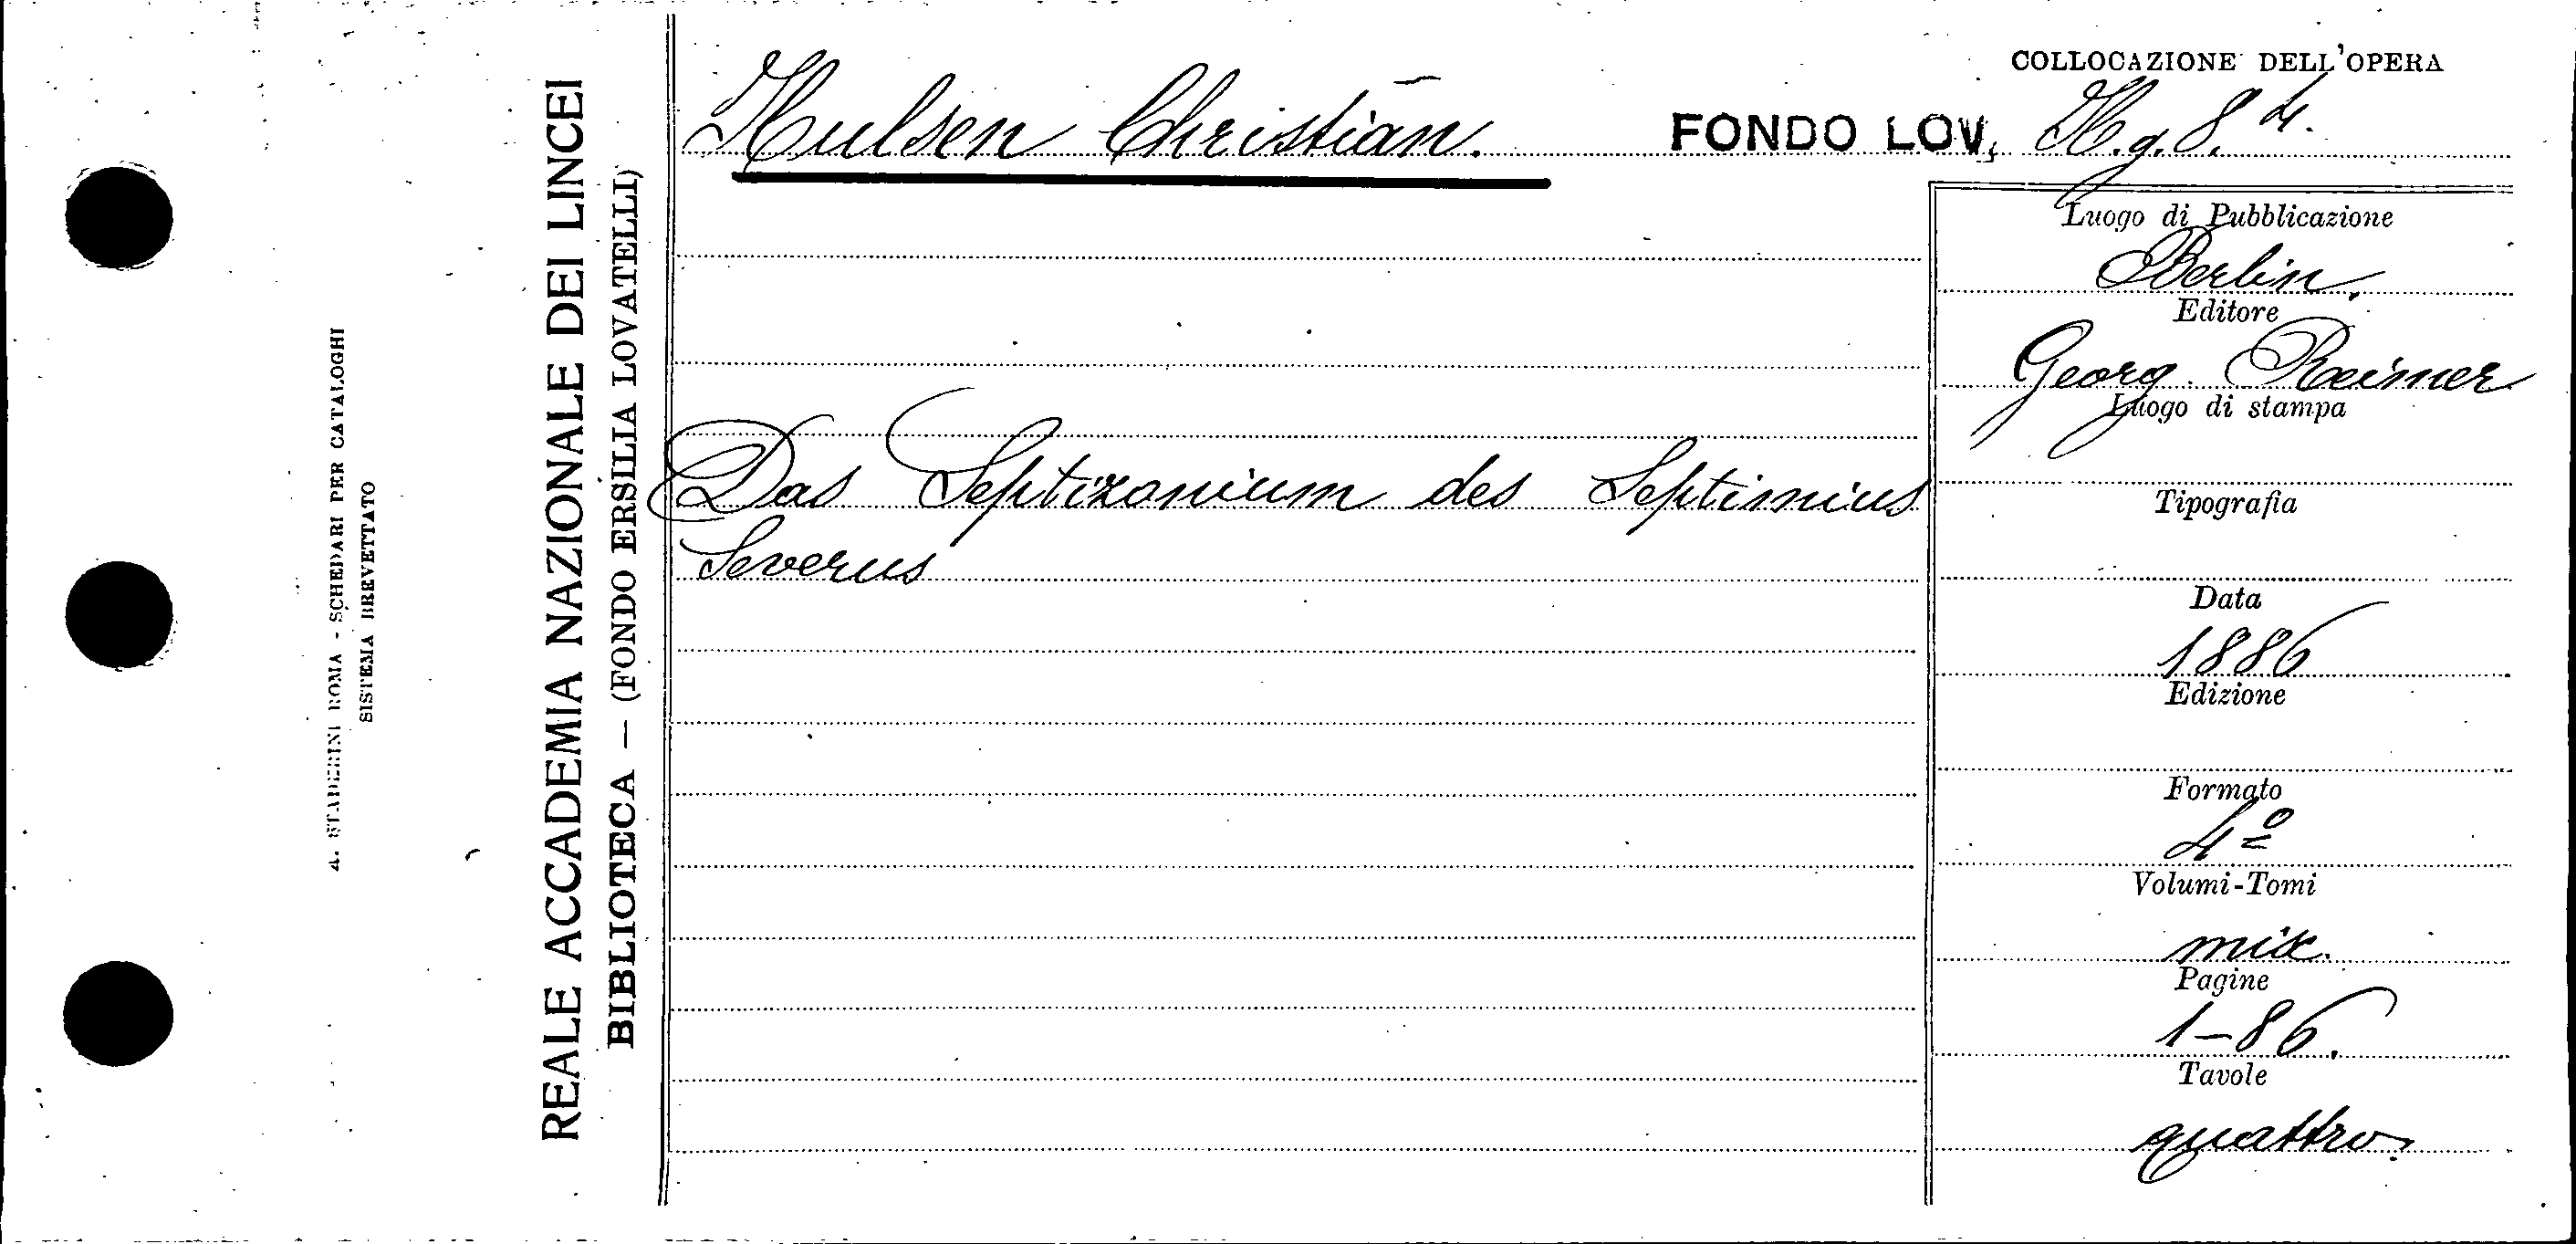 COLLOCAZIONE DELL'OPERA
Hulsen Christian.
FONDO LOV.
Luogo di Pubblicazione
Berlin.
Editore
Georg Reimer
Luogo di stampa
Das Septizonium des Septimius
Severus
Tipografia
Data
1886
Edizione
Formato
4º
Volumi-Tomi
Pagine
1-86.
Tavole
quattro.
REALE ACCADEMIA NAZIONALE DEI LINCEI
BIBLIOTECA — (FONDO ERSILIA LOVATELLI)
4. STADERINI ROMA - SCHEDARI PER CATALOGHI
SISTEMA BREVETTATO